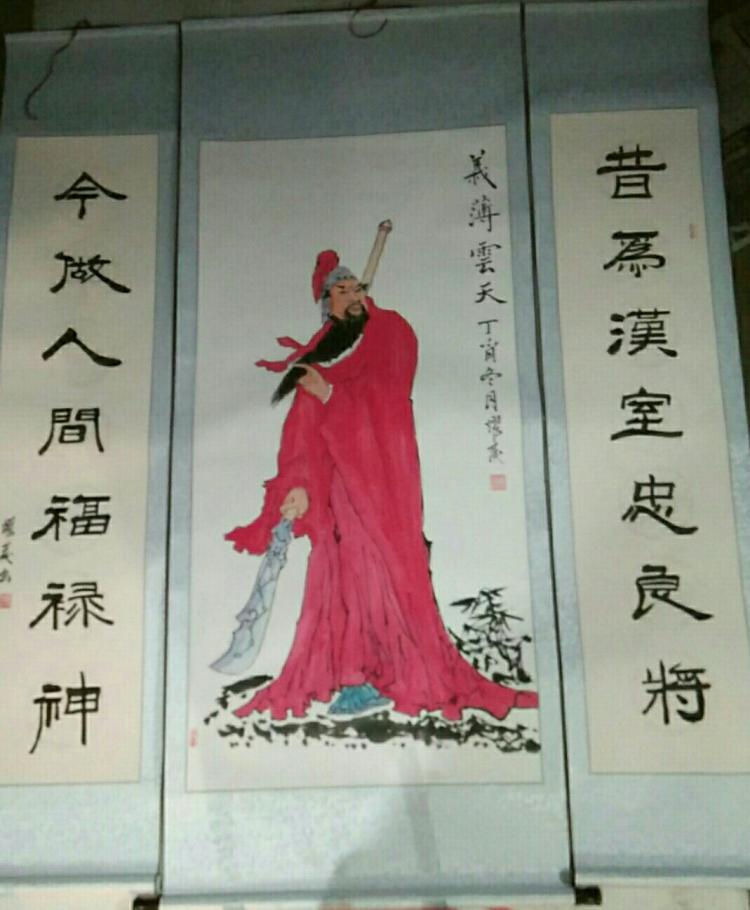 昔為漢室忠良將
義薄雲天
丁酉冬月
今做人間福禄神